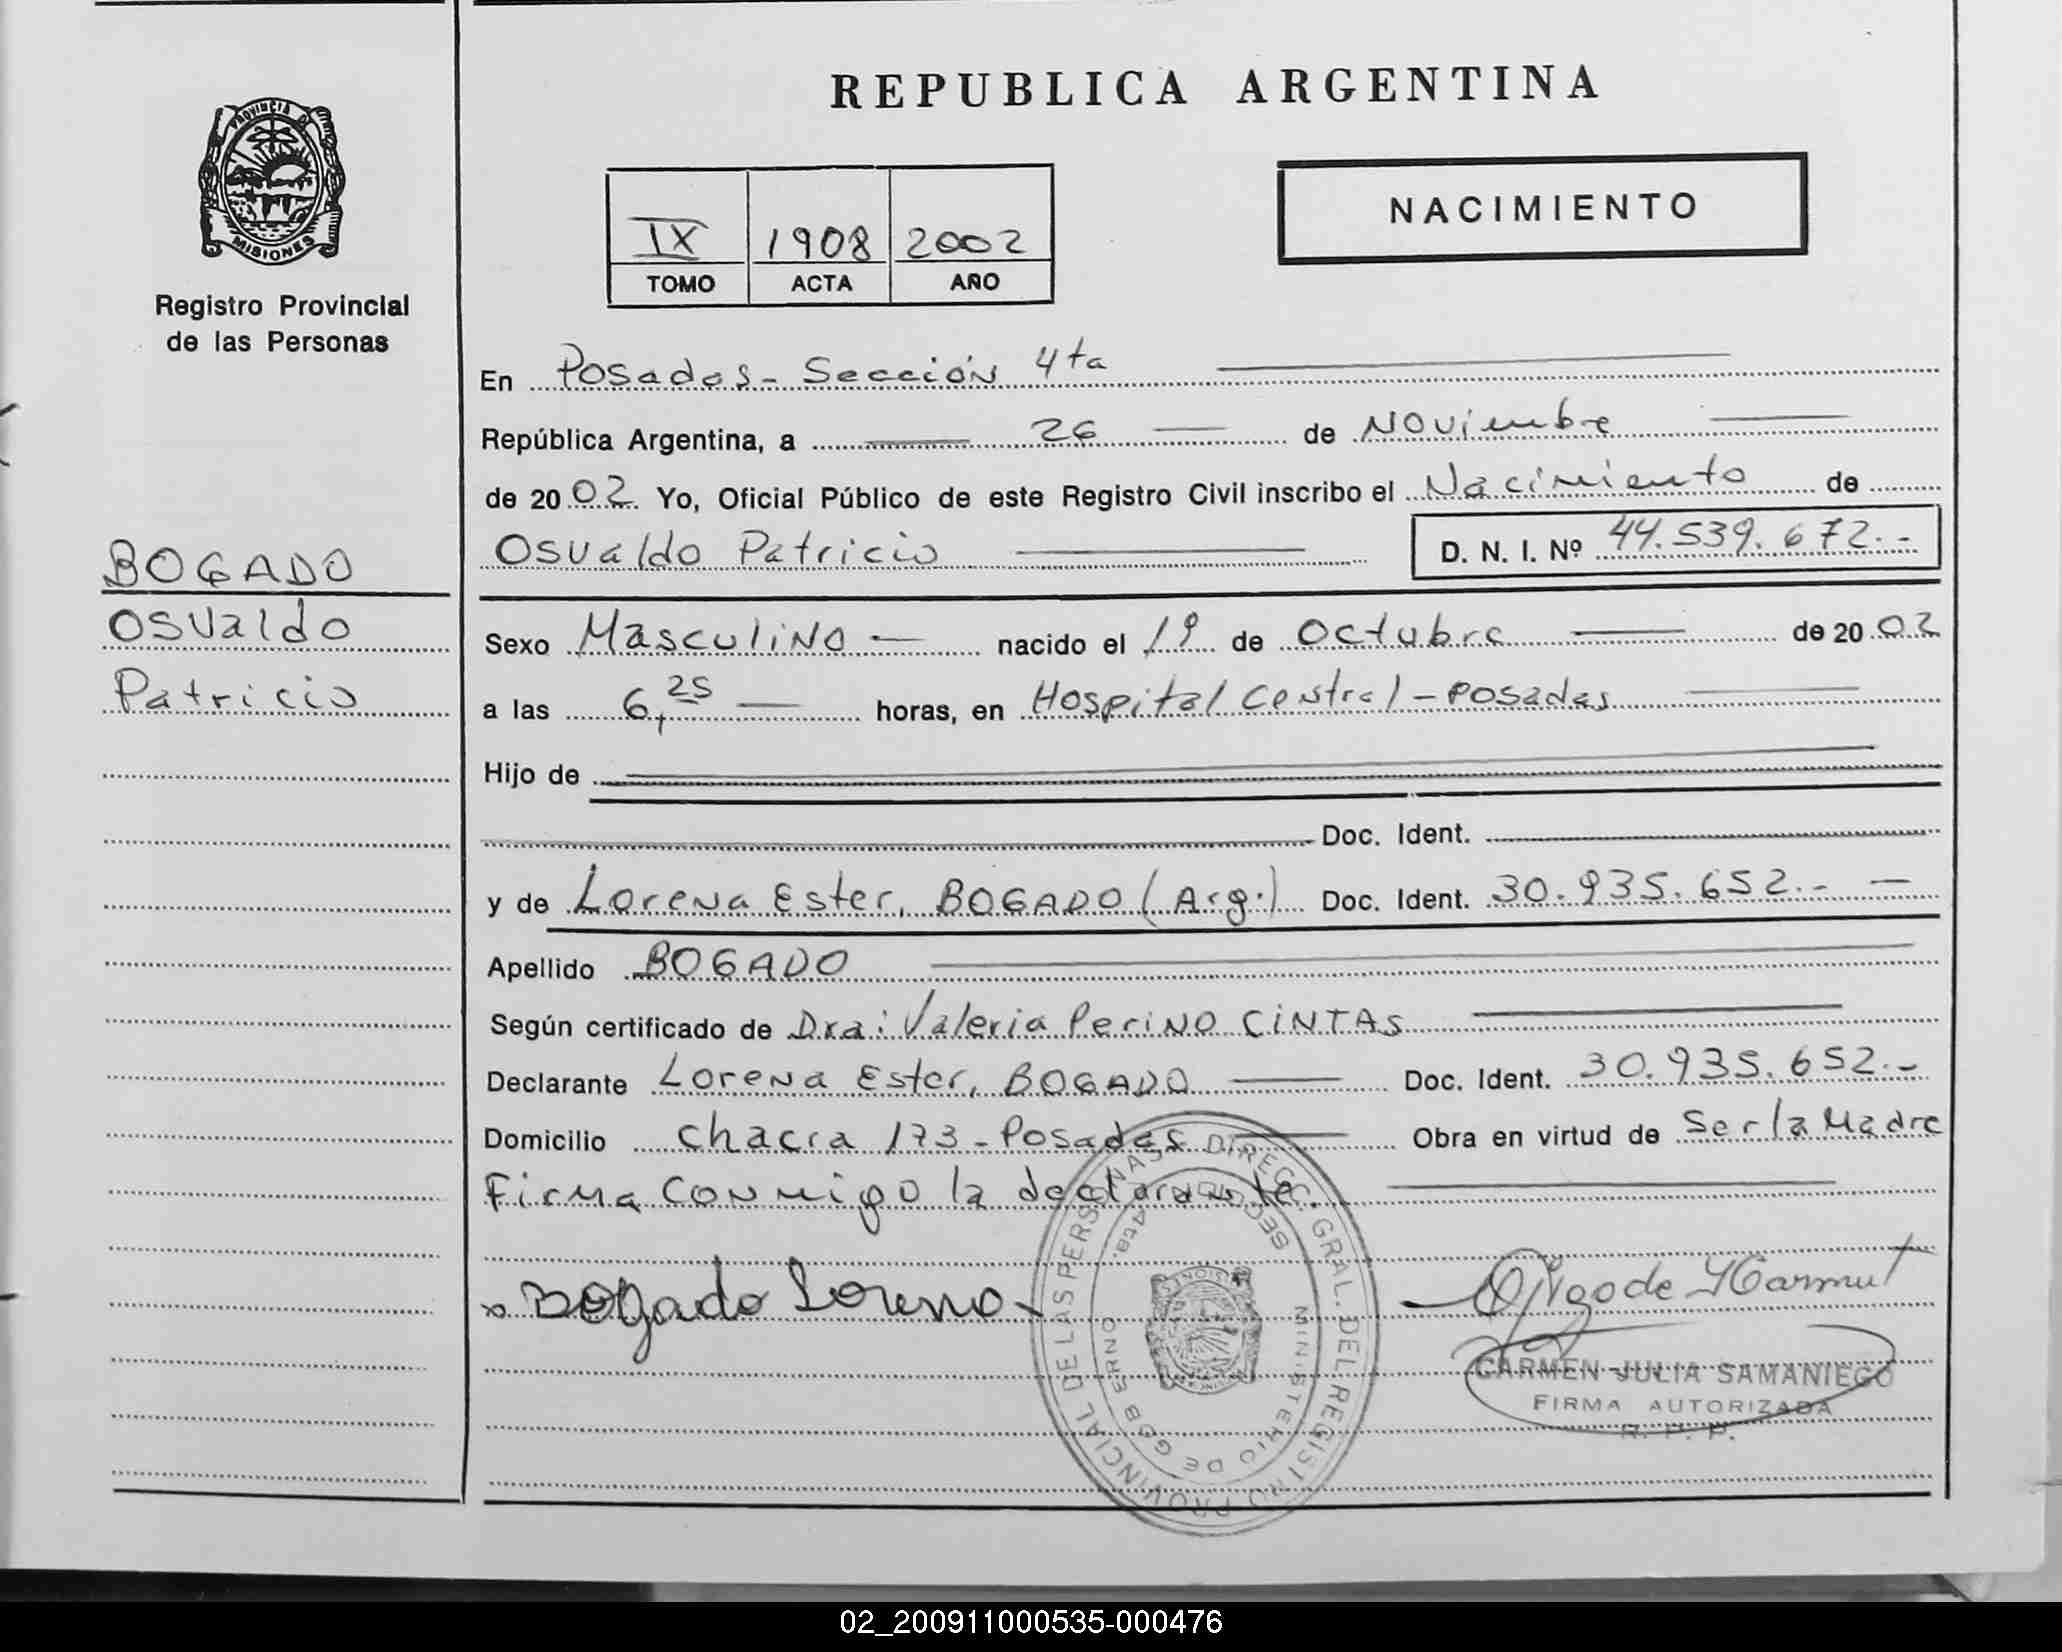 REPUBLICA ARGENTINA
PROVINCIA DE
MISIONES
Registro Provincial
de las Personas
IX 1908 2002
TOMO ACTA AÑO
NACIMIENTO
BOGADO
Osvaldo
Patricio
En Posadas - Sección 4ta
República Argentina, a 26 de Noviembre
de 2002 Yo, Oficial Público de este Registro Civil inscribo el Nacimiento de
Osvaldo Patricio D. N. I. Nº 44.539.672.-
Sexo Masculino nacido el 19 de Octubre de 2002
a las 6,25 horas, en Hospital Central - Posadas
Hijo de
Doc. Ident.
y de Lorena Ester, BOGADO (Arg.) Doc. Ident. 30.935.652.-
Apellido BOGADO
Según certificado de Dra: Valeria Perino CINTAS
Declarante Lorena Ester, BOGADO Doc. Ident. 30.935.652.-
Domicilio Chacra 173 - Posadas Obra en virtud de Ser la Madre
Firma conmigo la declarante.
Bogado Lorena
DIREC. GRAL. DEL REGISTRO PROVINCIAL DE LAS PERSONAS
MINISTERIO DE GOBIERNO
SECCION 4ta.
CARMEN JULIA SAMANIEGO
FIRMA AUTORIZADA
R. P. P.
02_200911000535-000476